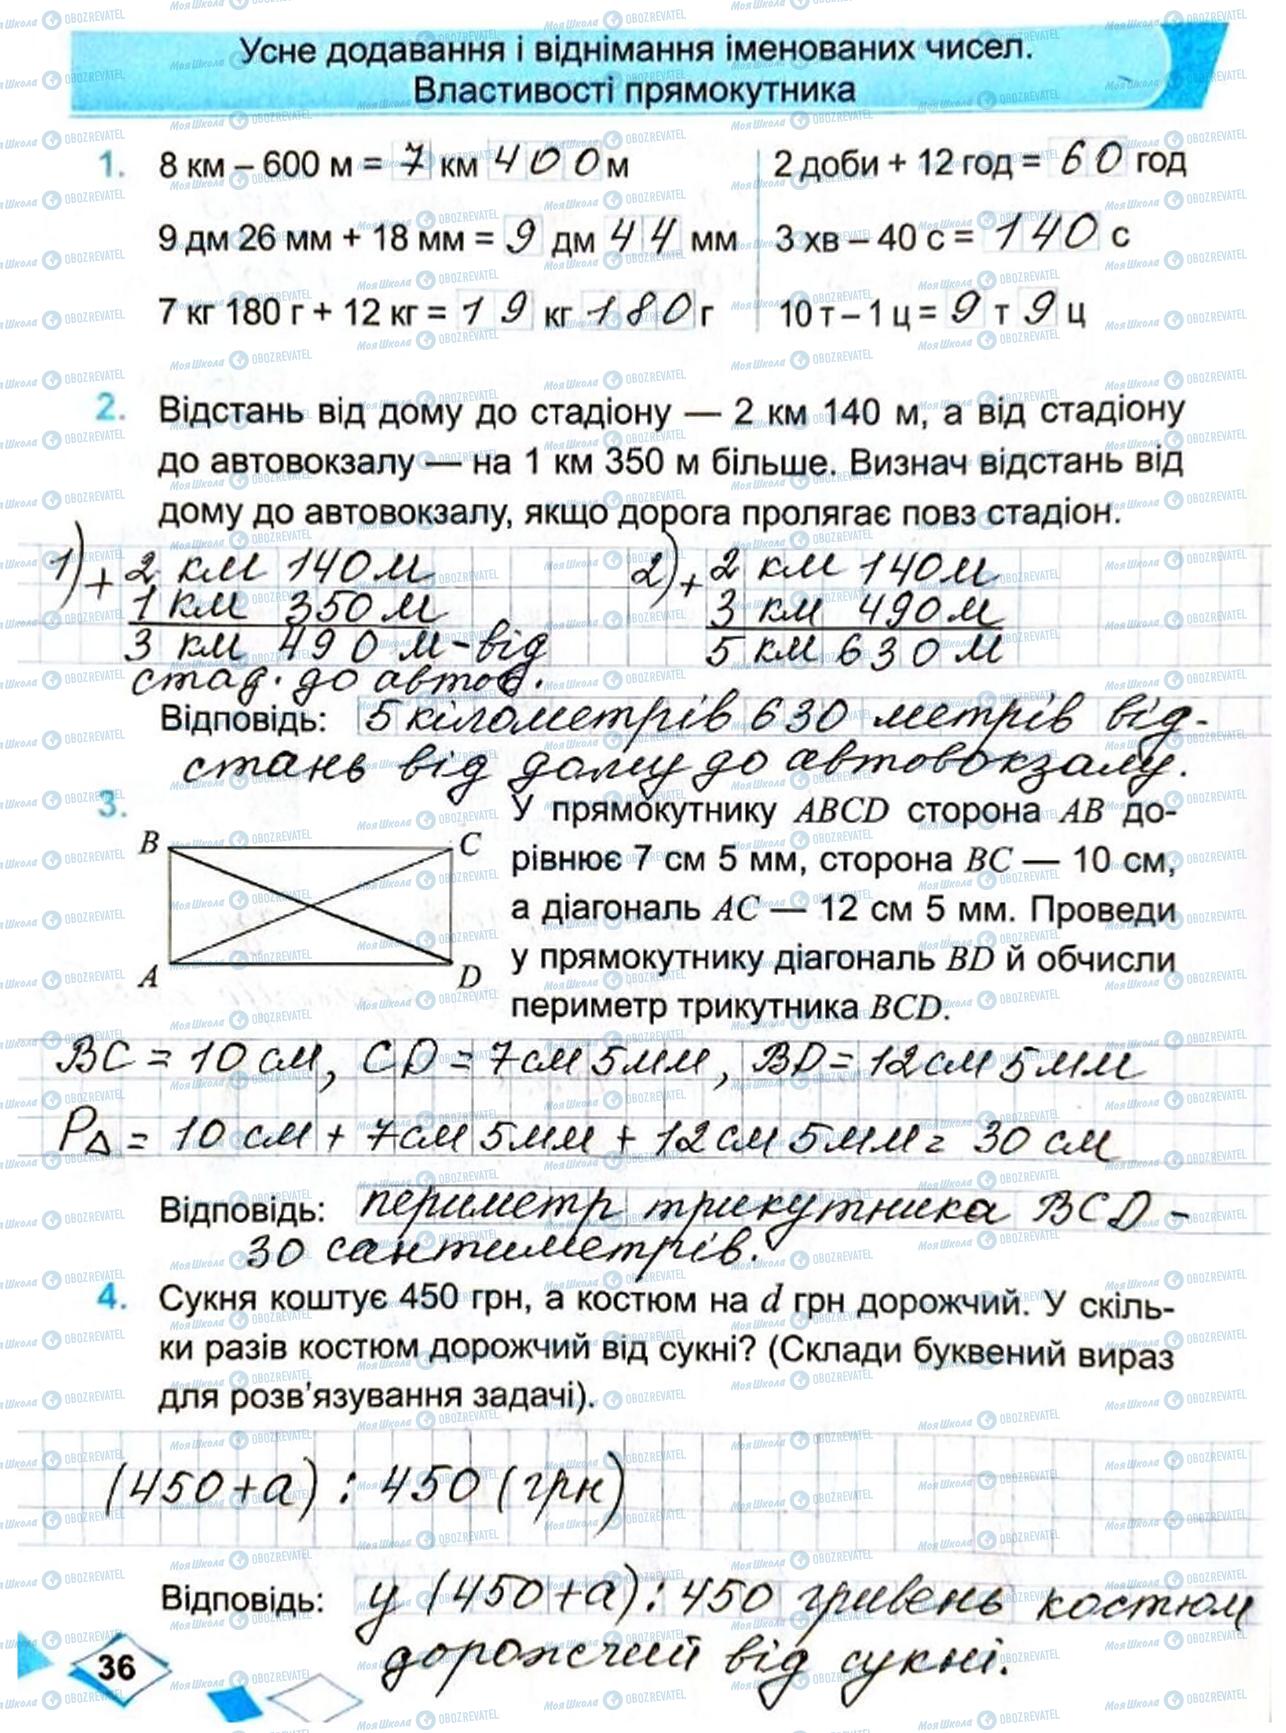 Усне додавання і віднімання іменованих чисел.
Властивості прямокутника
1. 8 км – 600 м = 7 км 400 м
9 дм 26 мм + 18 мм = 9 дм 44 мм
7 кг 180 г + 12 кг = 19 кг 180 г
2 доби + 12 год = 60 год
3 хв – 40 с = 140 с
10 т – 1 ц = 9 т 9 ц
2. Відстань від дому до стадіону — 2 км 140 м, а від стадіону
до автовокзалу — на 1 км 350 м більше. Визнач відстань від
дому до автовокзалу, якщо дорога пролягає повз стадіон.
1) + 2 км 140 м
1 км 350 м
3 км 490 м - від
стад. до автов.
2) + 2 км 140 м
3 км 490 м
5 км 630 м
Відповідь: 5 кілометрів 630 метрів від-
стань від дому до автовокзалу.
3. У прямокутнику ABCD сторона AB до-
рівнює 7 см 5 мм, сторона BC — 10 см,
а діагональ AC — 12 см 5 мм. Проведи
у прямокутнику діагональ BD й обчисли
периметр трикутника BCD.
B C
A D
BC = 10 см, CD = 7 см 5 мм, BD = 12 см 5 мм
P△ = 10 см + 7 см 5 мм + 12 см 5 мм = 30 см
Відповідь: периметр трикутника BCD -
30 сантиметрів.
4. Сукня коштує 450 грн, а костюм на d грн дорожчий. У скіль-
ки разів костюм дорожчий від сукні? (Склади буквений вираз
для розв'язування задачі).
(450+a) : 450 (грн)
Відповідь: у (450+a) : 450 гривень костюм
дорожчий від сукні.
36
МояШкола OBOZREVATEL